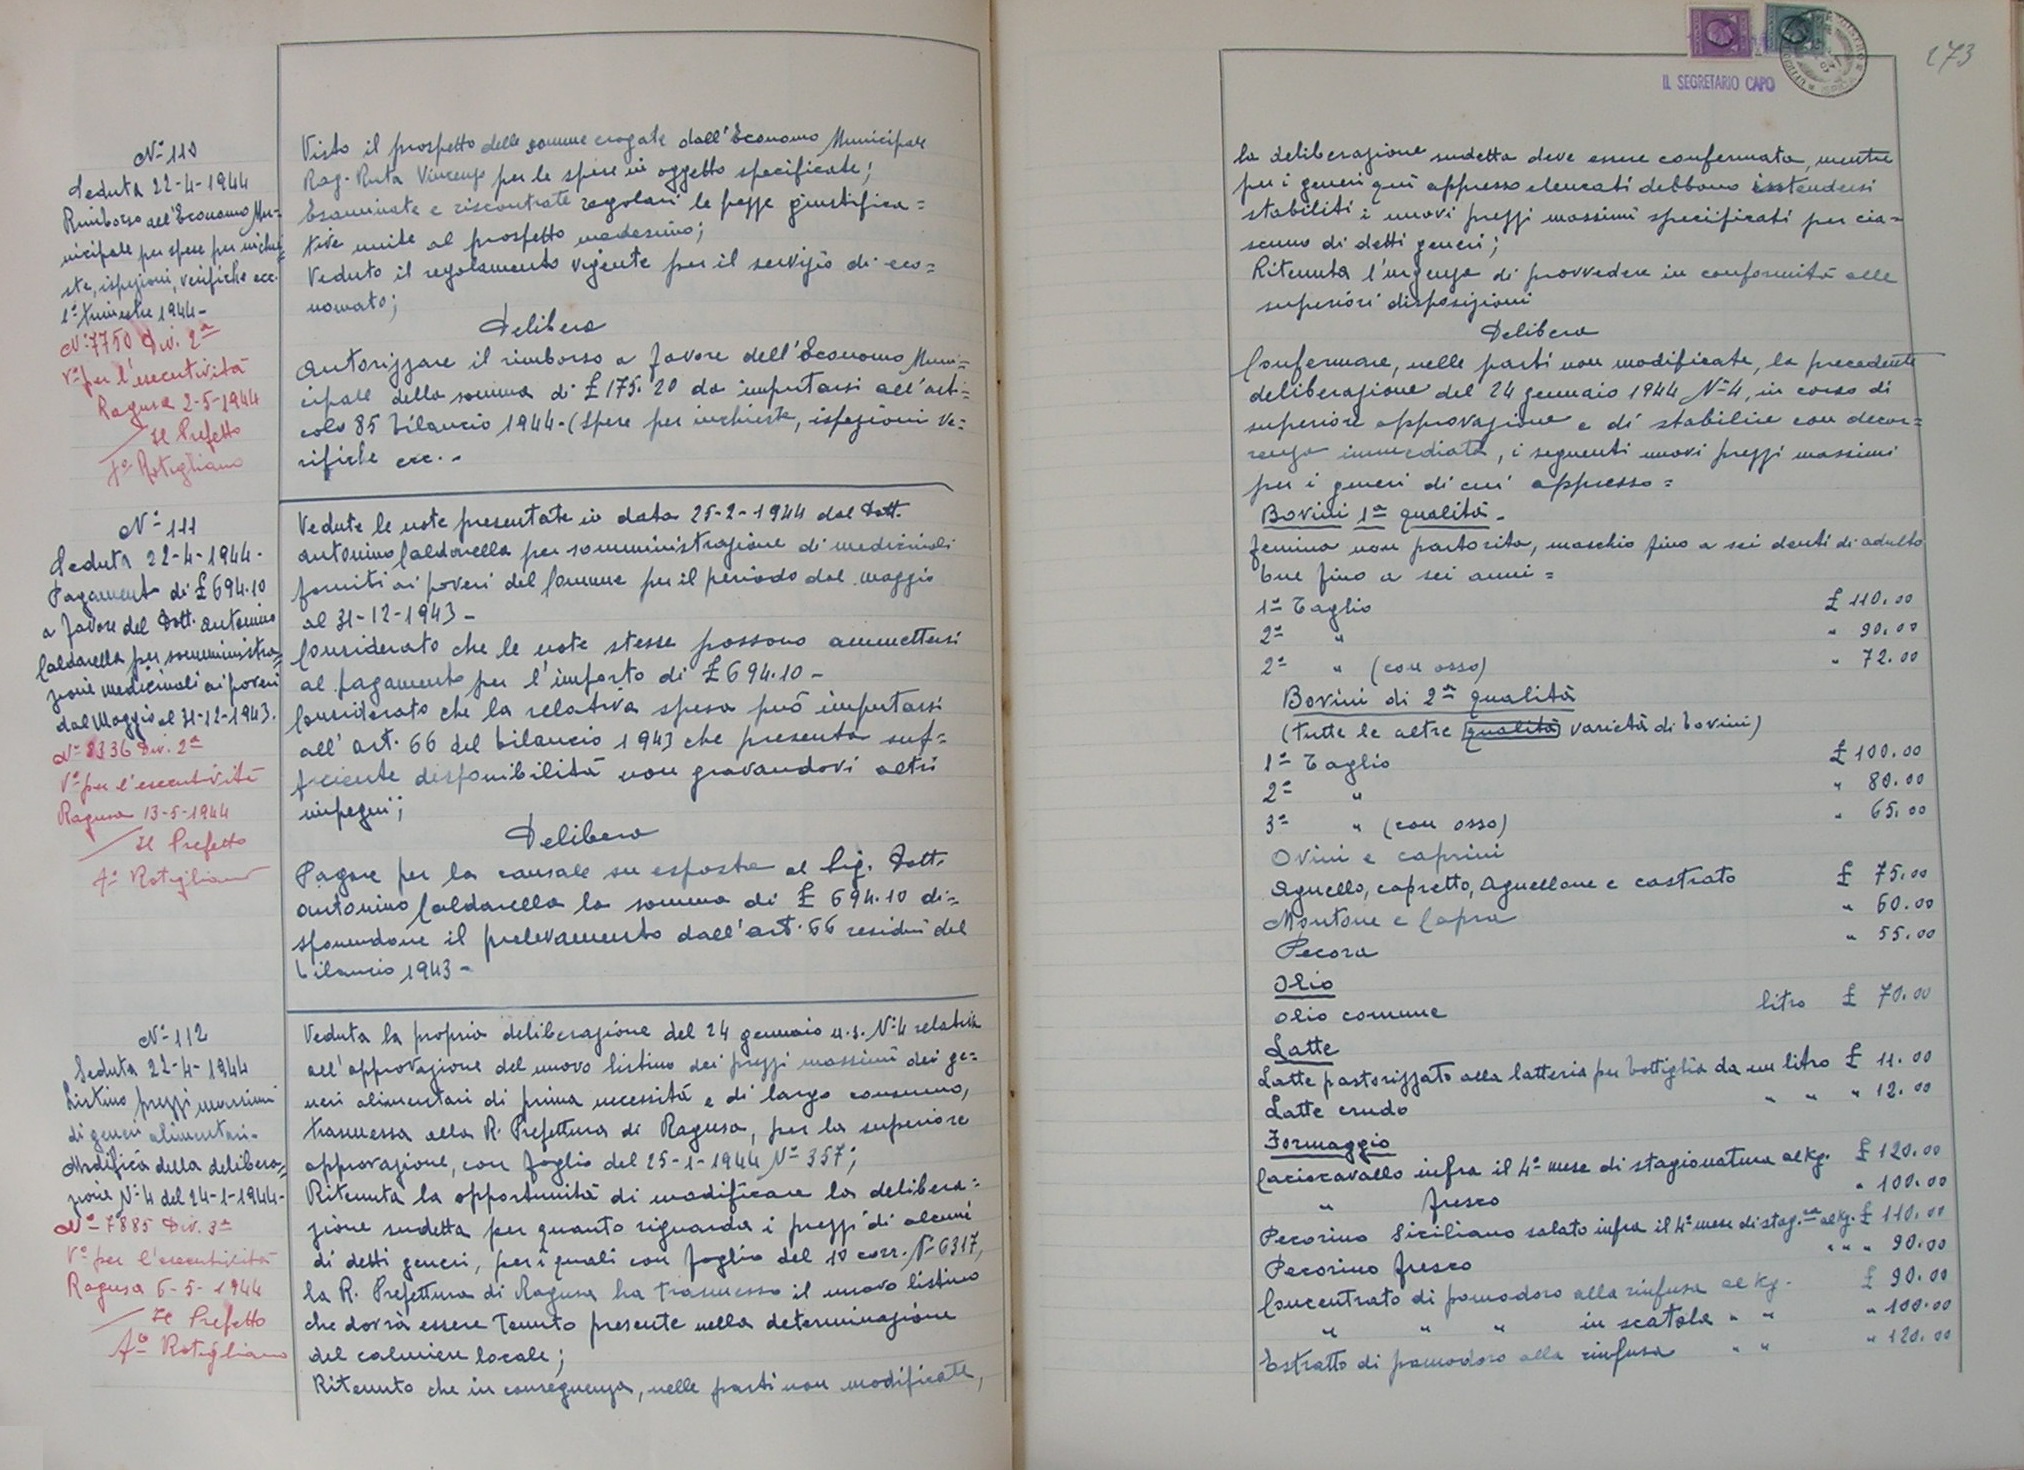 N° 110
Seduta 22-4-1944
Rimborso all'Economo Mu-
nicipale per spese per inchie-
ste, ispezioni, verifiche ecc.
1° trimestre 1944-
N° 7750 Div. 2ª
V° per l'esecutività
Ragusa 2-5-1944
Il Prefetto
F° Rotigliano
Visto il prospetto delle somme erogate dall'Economo Municipale
Rag. Ruta Vincenzo per le spese in oggetto specificate;
Esaminate e riscontrate regolari le pezze giustifica=
tive unite al prospetto medesimo;
Veduto il regolamento vigente per il servizio di eco=
nomato;
Delibera
Autorizzare il rimborso a favore dell'Economo Muni=
cipale della somma di £ 175.20 da imputarsi all'arti=
colo 85 bilancio 1944-(Spese per inchieste, ispezioni ve=
rifiche ecc.-
N° 111
Seduta 22-4-1944-
Pagamento di £ 694.10
a favore del Dott. Antonino
Caldarella per somministra=
zione medicinali ai poveri
dal Maggio al 31-12-1943.
N° 8336 Div. 2ª
V° per l'esecutività
Ragusa 13-5-1944
Il Prefetto
F° Rotigliano
Vedute le note presentate in data 25-2-1944 dal Dott.
Antonino Caldarella per somministrazione di medicinali
forniti ai poveri del Comune per il periodo dal maggio
al 31-12-1943-
Considerato che le note stesse possono ammettersi
al pagamento per l'importo di £ 694.10-
Considerato che la relativa spesa può imputarsi
all'art. 66 del bilancio 1943 che presenta suf=
ficiente disponibilità non gravandovi altri
impegni;
Delibera
Pagare per la causale su esposta al Sig. Dott.
Antonino Caldarella la somma di £ 694.10 di=
sponendone il prelevamento dall'art. 66 residui del
bilancio 1943-
N° 112
Seduta 22-4-1944
Listino prezzi massimi
di generi alimentari-
Modifica della delibera=
zione N° 4 del 24-1-1944-
N° 7885 Div. 3ª
V° per l'esecutività
Ragusa 6-5-1944
Il Prefetto
F° Rotigliano
Veduta la propria deliberazione del 24 gennaio u.s. N° 4 relativa
all'approvazione del nuovo listino dei prezzi massimi dei ge=
neri alimentari di prima necessità e di largo consumo,
trasmessa alla R. Prefettura di Ragusa, per la superiore
approvazione, con foglio del 25-1-1944 N° 357;
Ritenuta la opportunità di modificare la delibera=
zione sudetta per quanto riguarda i prezzi di alcuni
di detti generi, per i quali con foglio del 10 corr. N° 6317,
la R. Prefettura di Ragusa ha trasmesso il nuovo listino
che dovrà essere tenuto presente nella determinazione
del calmiere locale;
Ritenuto che in conseguenza, nelle parti non modificate,
IL SEGRETARIO CAPO
173
la deliberazione sudetta deve essere confermata, mentre
per i generi qui appresso elencati debbono intendersi
stabiliti i nuovi prezzi massimi specificati per cia=
scuno di detti generi;
Ritenuta l'urgenza di provvedere in conformità alle
superiori disposizioni
Delibera
Confermare, nelle parti non modificate, la precedente
deliberazione del 24 gennaio 1944 N° 4, in corso di
superiore approvazione e di stabilire con decor=
renza immediata, i seguenti nuovi prezzi massimi
per i generi di cui appresso=
Bovini 1ª qualità-
femina non partorita, maschio fino a sei denti di adulto
bue fino a sei anni=
1° Taglio £ 110.00
2° " " 90.00
2° " (con osso) " 72.00
Bovini di 2ª qualità
(tutte le altre qualità varietà di bovini)
1° Taglio £ 100.00
2° " " 80.00
3° " (con osso) " 65.00
Ovini e caprini
Agnello, capretto, agnellone e castrato £ 75.00
Montone e Capra " 60.00
Pecora " 55.00
Olio
Olio comune litro £ 70.00
Latte
Latte pastorizzato alla latteria per bottiglia da un litro £ 11.00
Latte crudo " " " 12.00
Formaggio
Caciocavallo infra il 4° mese di stagionatura al kg. £ 120.00
" fresco " 100.00
Pecorino Siciliano salato infra il 4° mese di stag.ra al kg. £ 110.00
Pecorino fresco " " " 90.00
Concentrato di pomodoro alla rinfusa al kg. £ 90.00
" " " in scatola " " " 100.00
Estratto di pomodoro alla rinfusa " " " 120.00